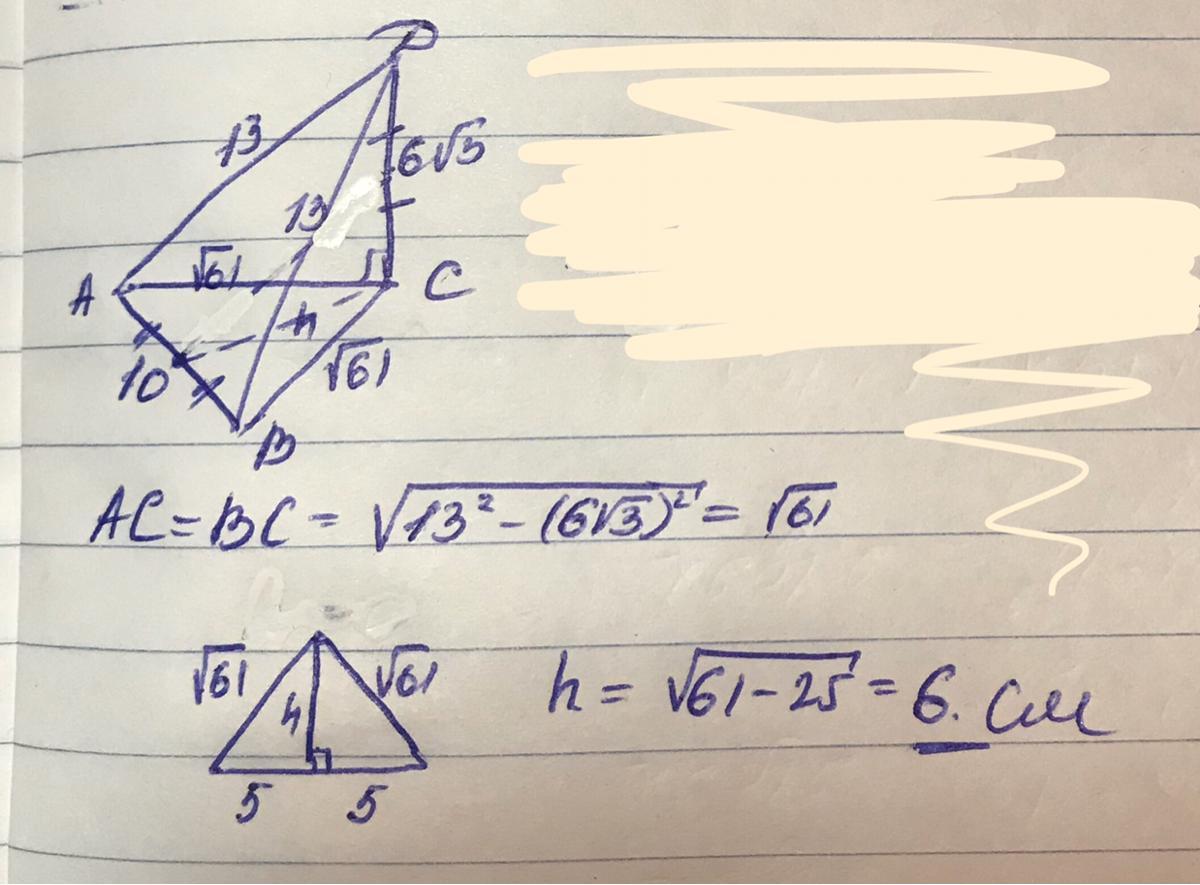 D
13
6√3
13
√61
A
C
h
10
√61
B
AC = BC = √13² - (6√3)² = √61
√61
√61
h
h = √61 - 25 = 6. см
5
5